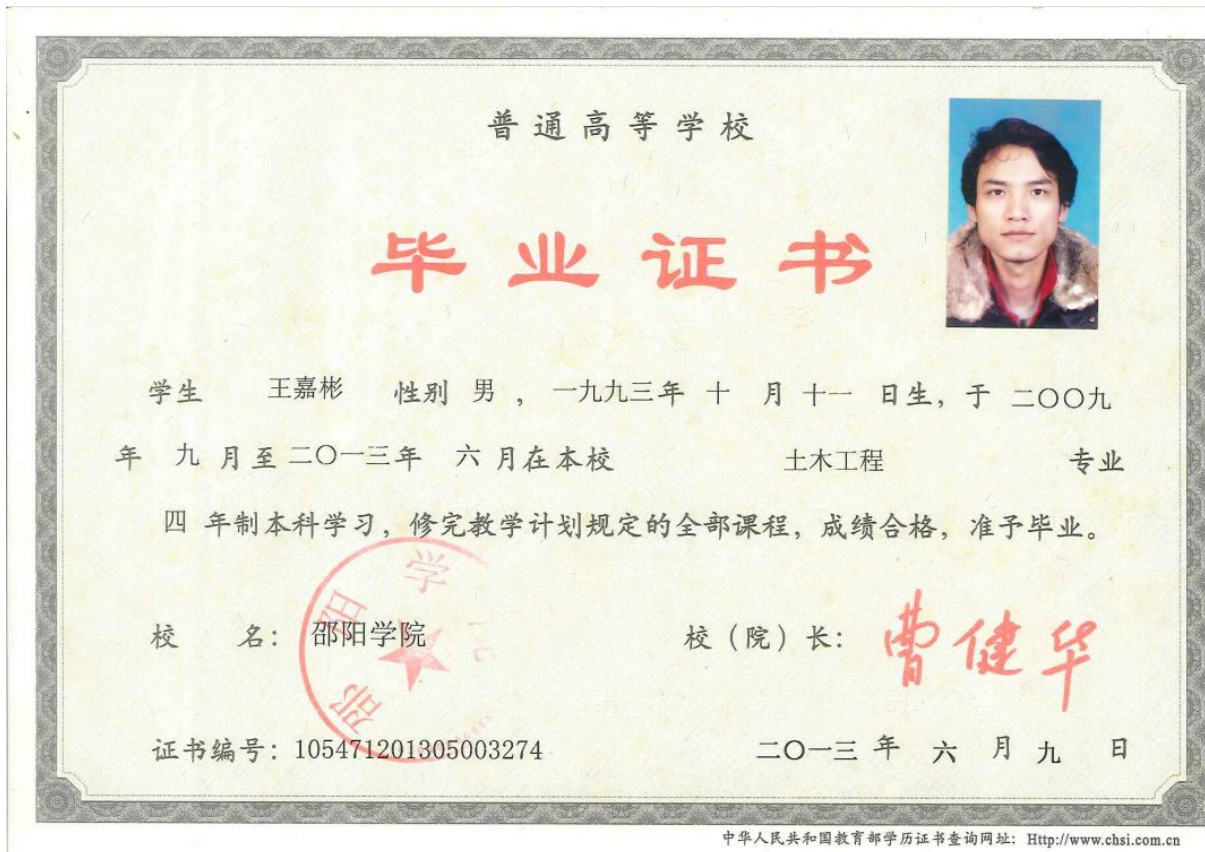 普通高等学校
毕业证书
学生 王嘉彬 性别 男 , 一九九三年 十 月 十一 日生, 于 二〇〇九
年 九 月至二〇一三年 六 月在本校 土木工程 专业
四 年制本科学习, 修完教学计划规定的全部课程, 成绩合格, 准予毕业。
邵阳学
校 名: 邵阳学院 校(院)长: 曹健华
证书编号: 105471201305003274 二〇一三 年 六 月 九 日
中华人民共和国教育部学历证书查询网址: Http://www.chsi.com.cn